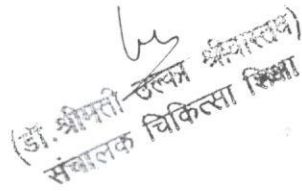 (डॉ. श्रीमती उल्का श्रीवास्तव)
संचालक चिकित्सा शिक्षा